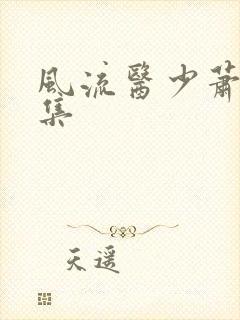 風流醫少蕭
集
天遥